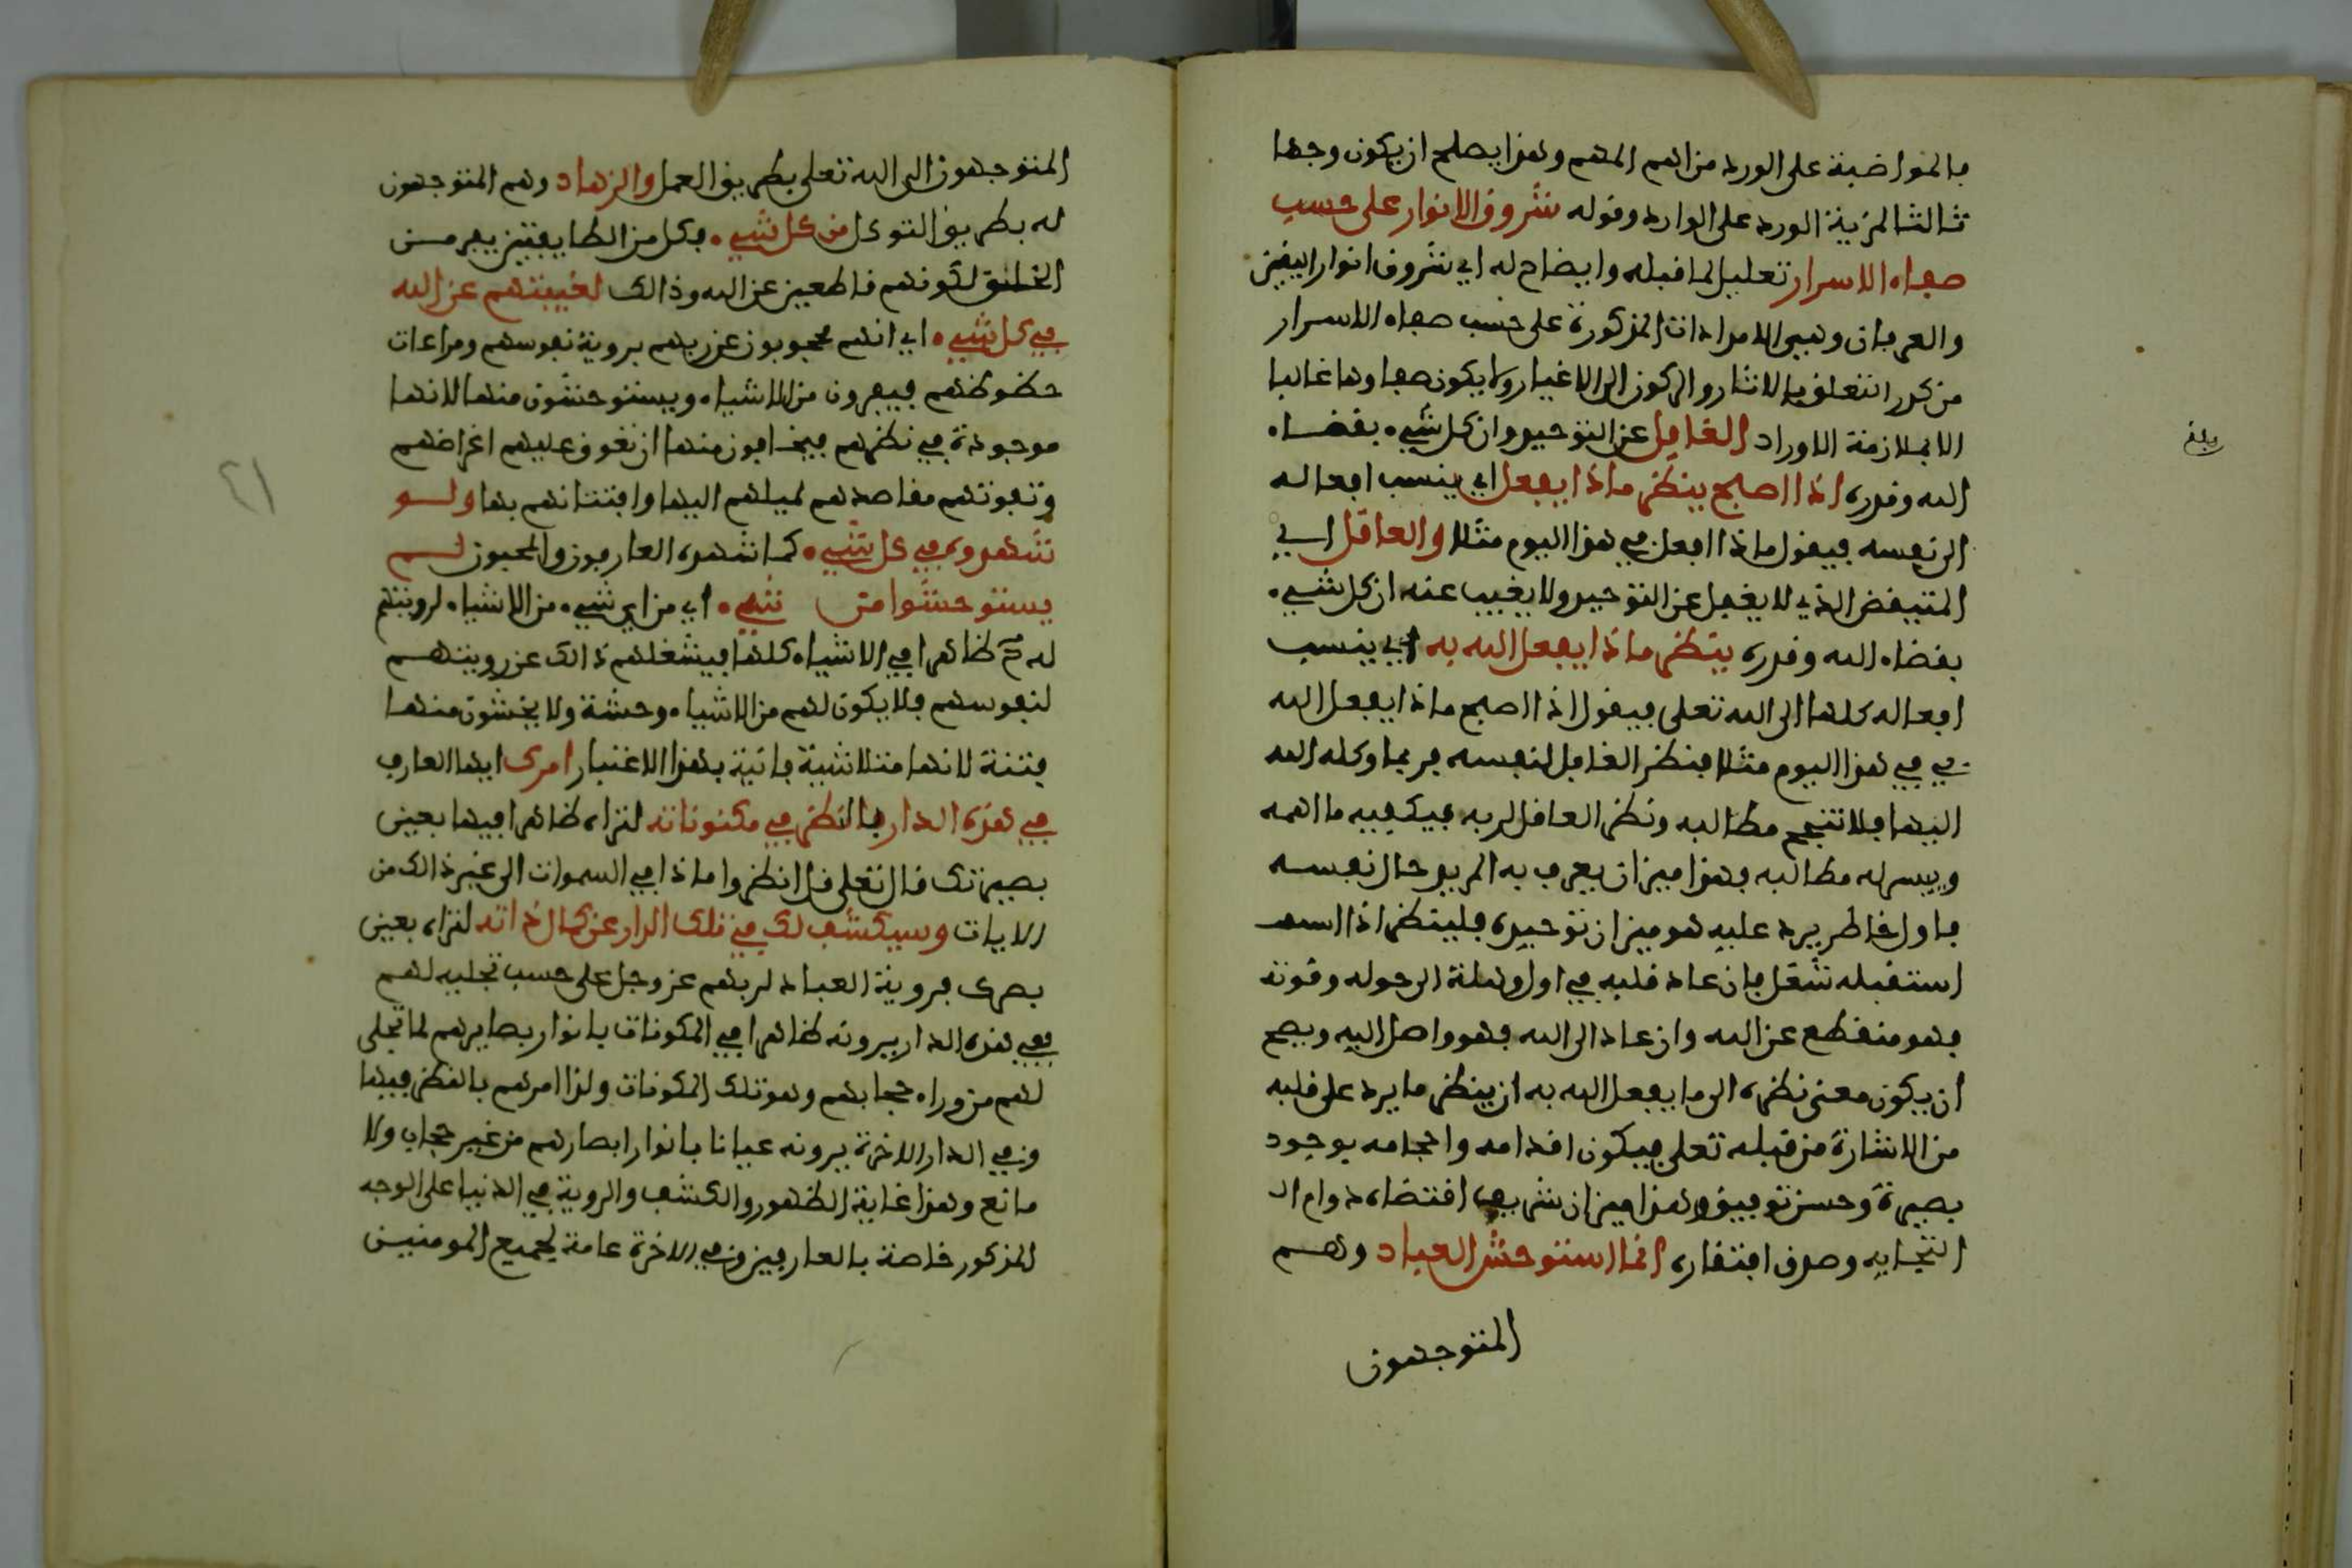 بالمواضبة على الورد من اهم المهم وهذا يصلح ان يكون وجها
ثالثا لمزية الورد على الوارد وقوله شروق الانوار على حسب
صفاء الاسرار تعليل لما قبله وايضاح له اي شروق انوار اليقين
والعرفان وهي الامدادات المذكورة على حسب صفاء الاسرار
من كدر التعلق بالاثار والركون الى الاغيار ولا يكون صفاوها غالبا
الا بملازمة الاوراد الغافل عن التوحيد وان كل شيء بقضاء
الله وقدره اذا اصبح ينظر ماذا يفعل اي ينسب افعاله
الى نفسه فيقول ماذا افعل في هذا اليوم مثلا والعاقل اي
المتيقض الذي لا يغفل عن التوحيد ولا يغيب عنه ان كل شيء
بقضاء الله وقدره ينظر ماذا يفعل الله به اي ينسب
افعاله كلها الى الله تعلى فيقول اذا اصبح ماذا يفعل الله
بي في هذا اليوم مثلا فنظر الغافل لنفسه فربما وكله الله
اليها فلا تنجح مطالبه ونظر العاقل لربه فيكفيه ما اهمه
وييسر له مطالبه فهذا ميزان يعرف به المريد حال نفسه
فاول خاطر يرد عليه هو ميزان توحيده فلينظر اذا
استقبله شغل فان عاد قلبه في اول وهلة الى حوله وقوته
فهو منقطع عن الله وان عاد الى الله فهو واصل اليه ويصح
ان يكون معنى نظره الى ما يفعل الله به ان ينظر ما يرد على قلبه
من الاشارة من قبله تعلى فيكون اقدامه واحجامه بوجود
بصيرة وحسن توفيق وهذا ميزان شريف اقتضاه دوام ال
التجايه وصدق افتقاره انما استوحش العباد وهم
المتوجهون
بلغ
المتوجهون الى الله تعلى بطريق العمل والزهاد وهم المتوجهون
له بطريق التوكل من كل شيء فكل من الطايفتين يفر من
الخلق لكونهم قاطعين عن الله وذالك لغيبتهم عن الله
في كل شيء اي انهم محجوبون عن ربهم بروية نفوسهم ومراعات
حظوظهم فيفرون من الاشياء ويستوحشون منها لانها
موجودة في نظرهم فيخافون منها ان تعوق عليهم اغراضهم
وتفوتهم مقاصدهم لميلهم اليها وافتتانهم بها ولو
شهدوه في كل شيء كما شهده العارفون والمحبون لم
يستوحشوا من شيء اي من اي شيء من الاشياء لرويتهم
له ظاهرا في الاشياء كلها فيشغلهم ذالك عن رويتهم
لنفوسهم فلا يكون لهم من الاشياء وحشة ولا يخشون منها
فتنة لانها متلاشية فانية بهذا الاعتبار امرك ايها العارف
في هذه الدار بالنظر في مكنوناته لتراه ظاهرا فيها بعين
بصيرتك قال تعلى قل انظروا ماذا في السموات الى غير ذالك من
الايات وسيكشف لك في تلك الدار عن كمال ذاته لتراه بعين
بصرك فروية العباد لربهم عز وجل على حسب تجليه لهم
ففي هذه الدار يرونه ظاهرا في المكونات بانوار بصايرهم لما تجلى
لهم من وراء حجابهم وهو تلك المكونات ولذا امرهم بالنظر فيها
وفي الدار الاخرة يرونه عيانا بانوار ابصارهم من غير حجاب ولا
مانع وهذا غاية الظهور والكشف والروية في الدنيا على الوجه
المذكور خاصة بالعارفين وفي الاخرة عامة لجميع المومنين
٤١